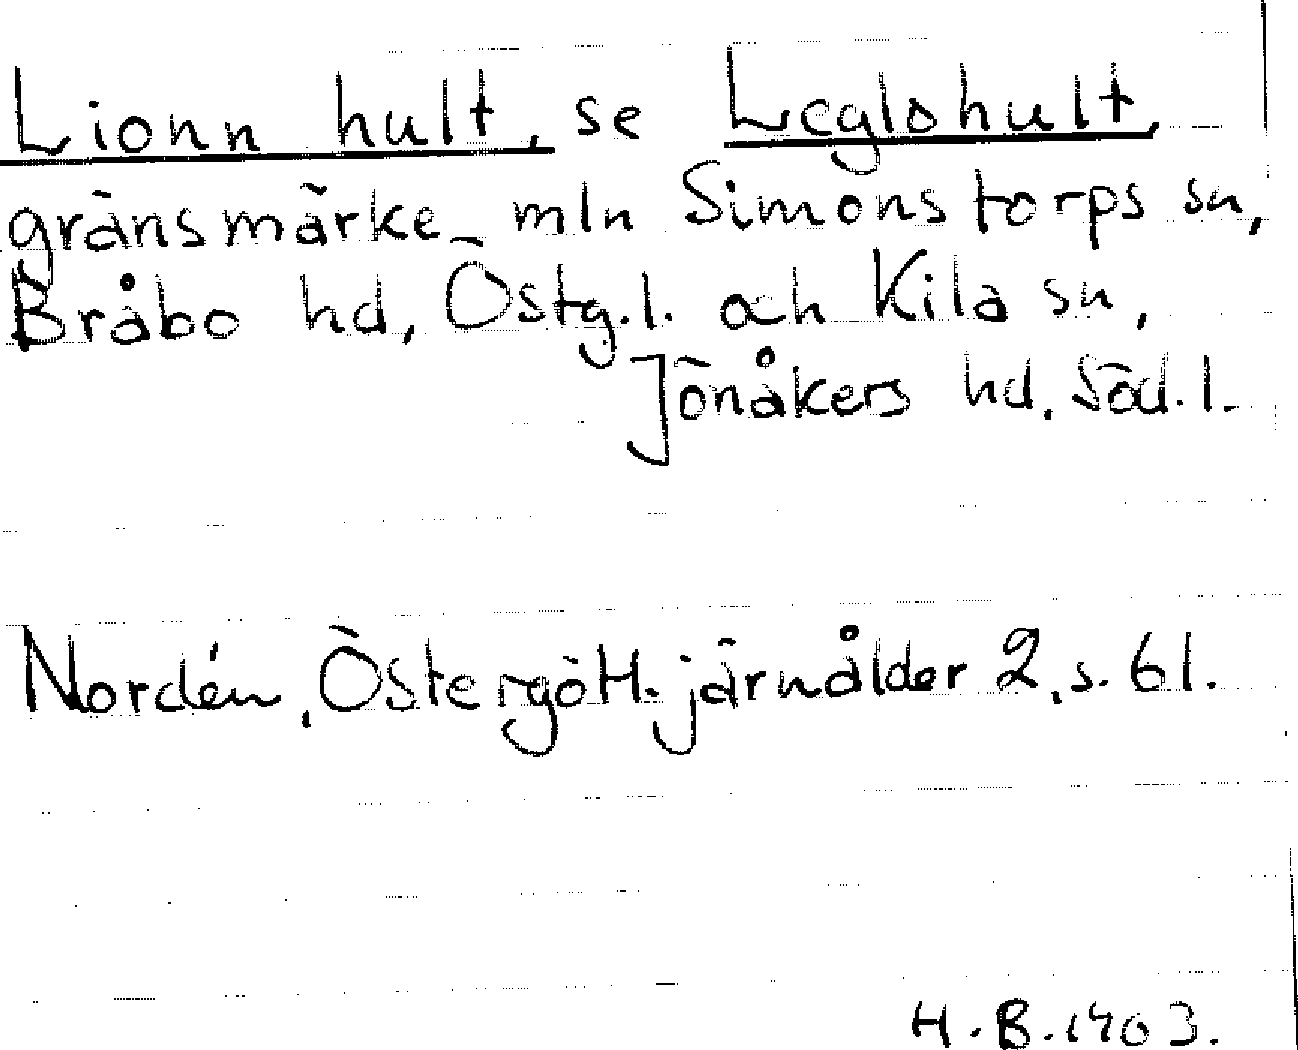 Lionn hult, se Leglohult,
gränsmärke mln Simonstorps sn,
Bråbo hd, Östg.l. och Kila sn,
Jönåkers hd, Söd.l.
Nordén, Östergötl. järnålder 2, s. 61.
H.B. 1703.